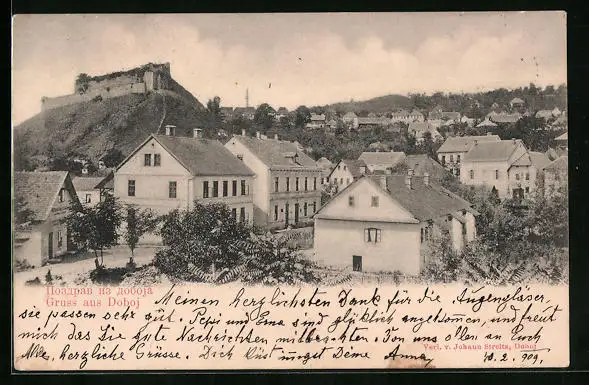 Поздрав из добоја
Gruss aus Doboj
Meinen herzlichsten Dank für die Augengläser,
sie passen sehr gut. Pepi und Ema sind glücklich angekommen, und freut
mich das Sie gute Nachrichten mitbrachten. Von uns allen an Euch
Alle, herzliche Grüsse. Dich küst innigst Deine Anna
Verl. v. Johann Streitz, Doboj
10. 2. 909.